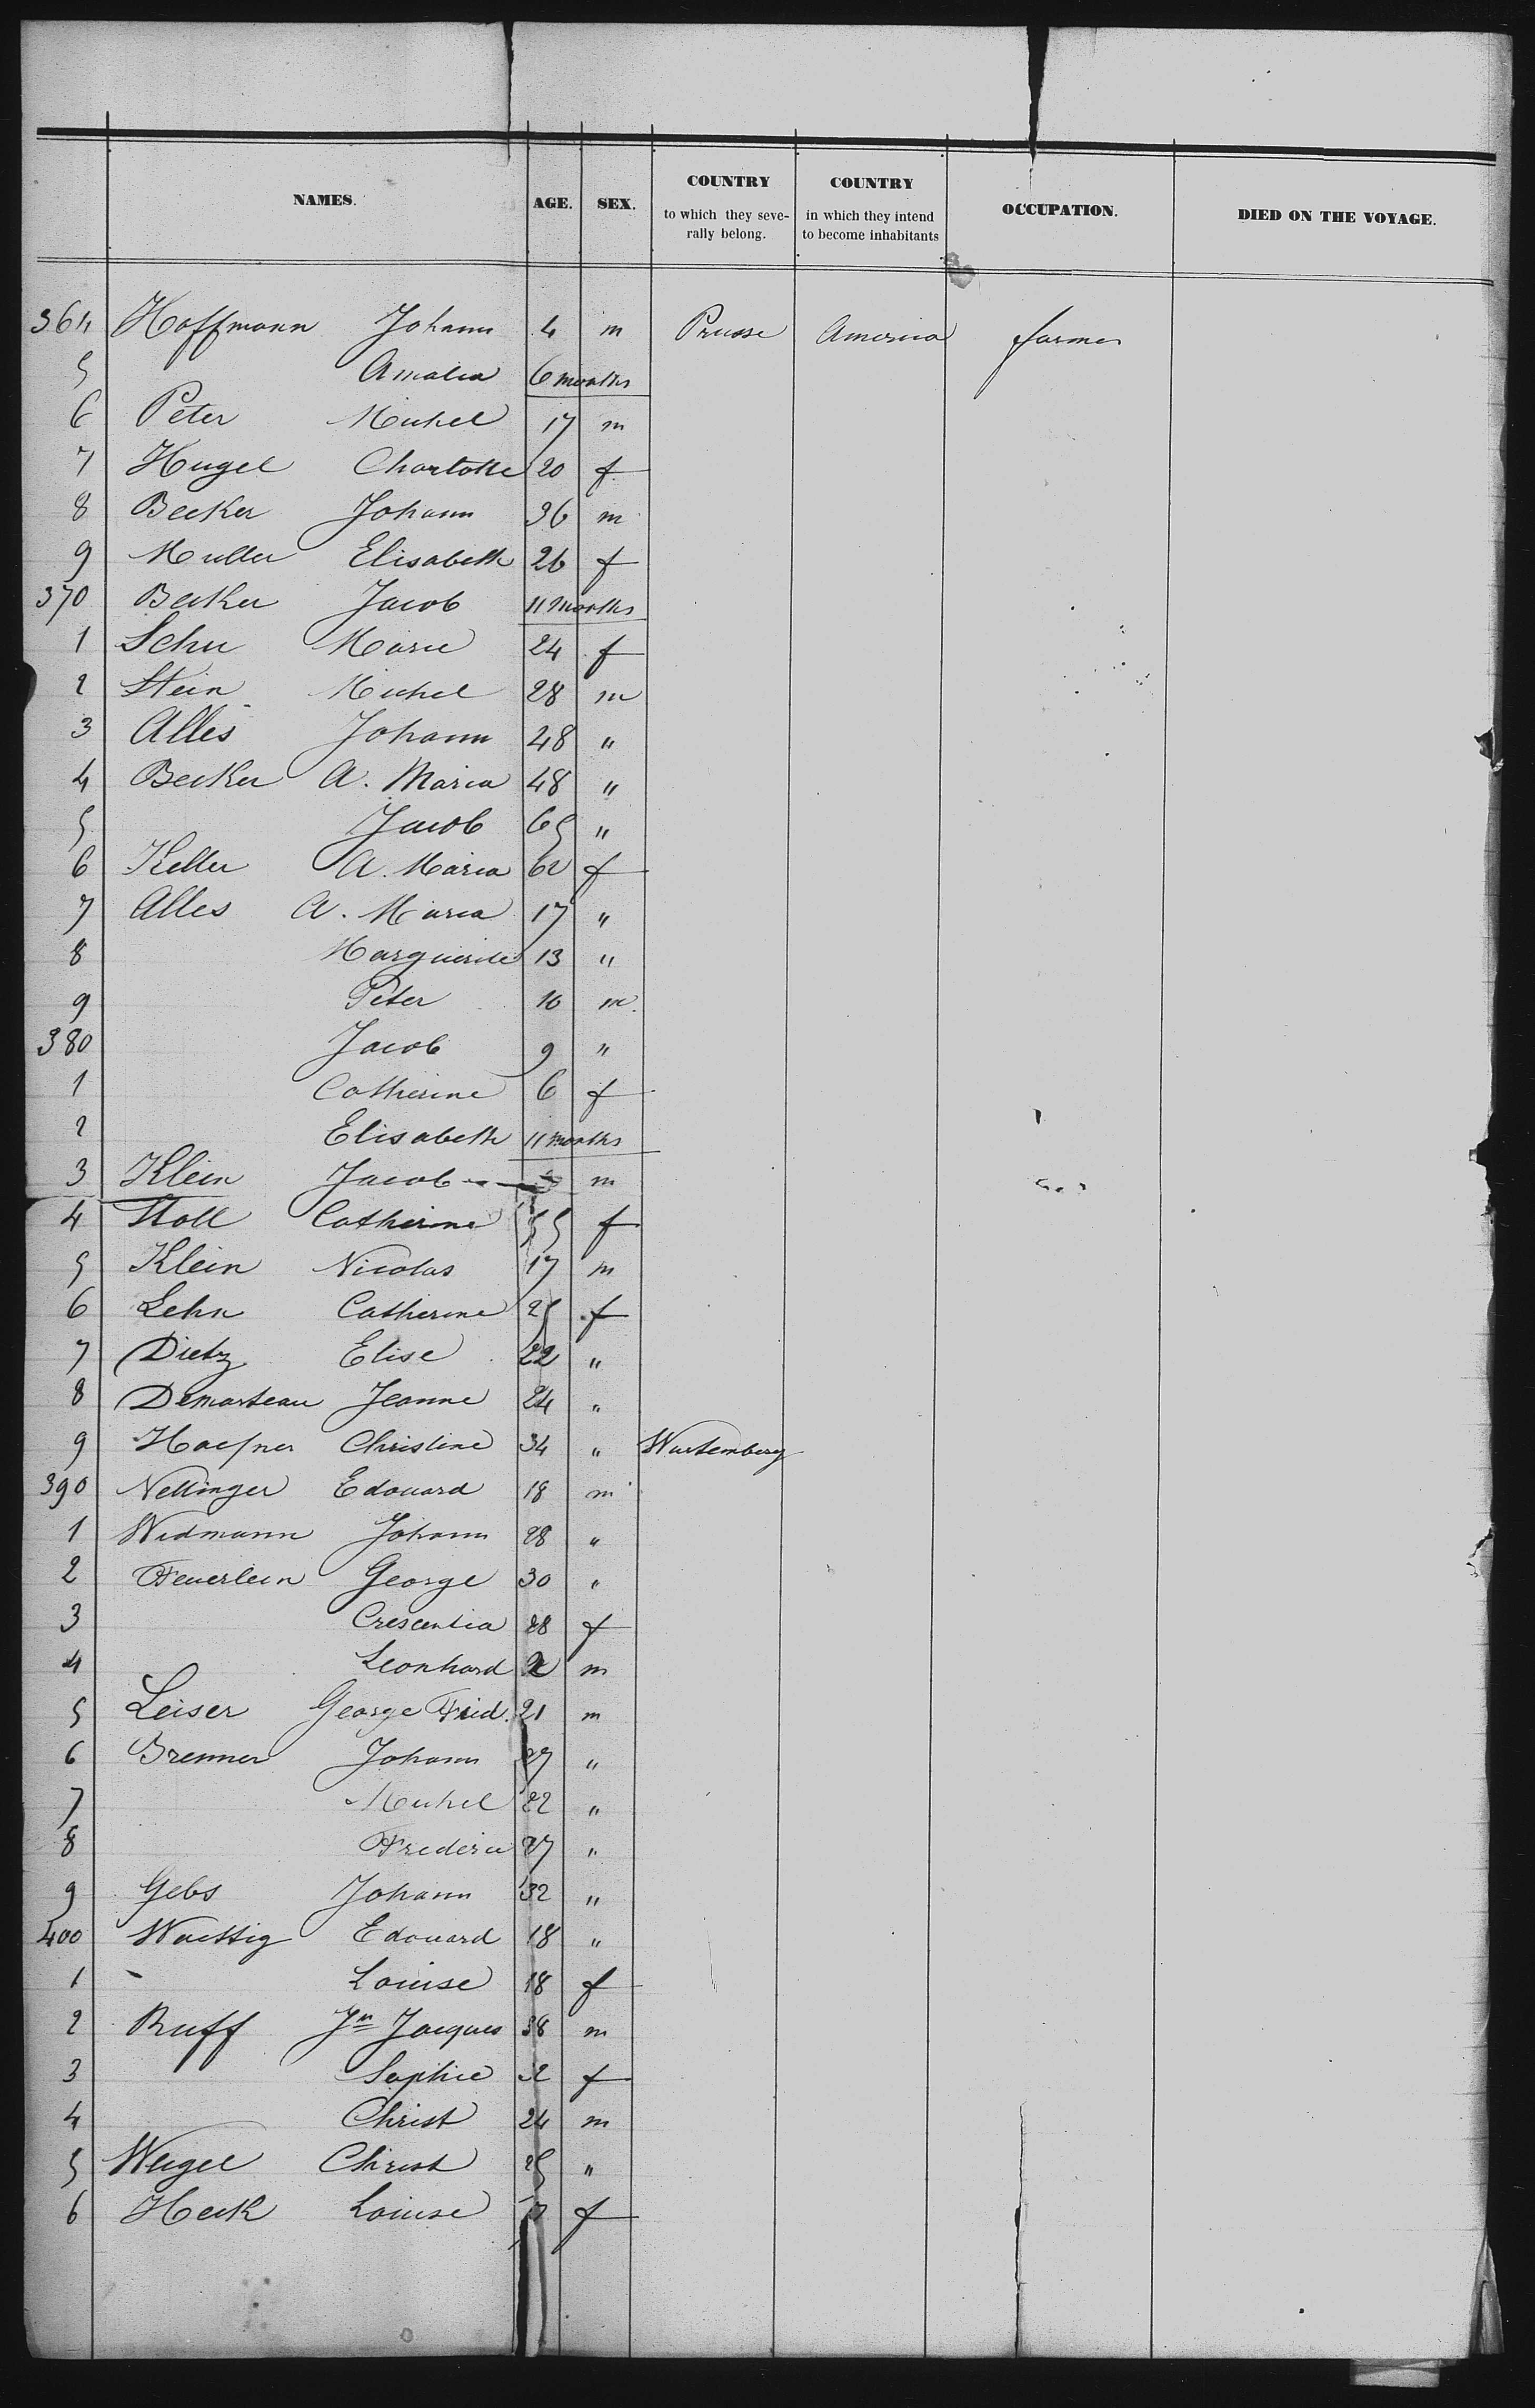 NAMES. AGE. SEX. COUNTRY to which they seve-rally belong. COUNTRY in which they intend to become inhabitants OCCUPATION. DIED ON THE VOYAGE.
364 Hoffmann Johann 4 m Prusse America farmer
5 Amalia 6 months
6 Peter Michel 17 m
7 Hugel Charlotte 20 f
8 Becker Johann 36 m
9 Muller Elisabeth 26 f
370 Becker Jacob 11 months
1 Schu Marie 24 f
2 Stein Michel 28 m
3 Alles Johann 48 "
4 Becker A. Maria 48 "
5 Jacob 65 "
6 Keller A. Maria 62 f
7 Alles A. Maria 17 "
8 Marguerite 13 "
9 Peter 10 m
380 Jacob 9 "
1 Catherine 6 f
2 Elisabeth 11 months
3 Klein Jacob m
4 Stoll Catherine 55 f
5 Klein Nicolas 17 m
6 Lehn Catherine 25 f
7 Dietz Elise 22 "
8 Demarteau Jeanne 24 "
9 Haefner Christine 34 " Wurtemberg
390 Nellinger Edouard 18 m
1 Widmann Johann 28 "
2 Feuerlein George 30 "
3 Crescentia 28 f
4 Leonhard m
5 Leiser George Fried. 21 m
6 Brenner Johann 27 "
7 Michel 22 "
8 Frederic 27 "
9 Gebs Johann 32 "
400 Waettig Edouard 18 "
1 Louise 18 f
2 Ruff Jn Jacques 38 m
3 Sophie f
4 Christ 24 m
5 Weigel Christ 25 "
6 Heck Louise f